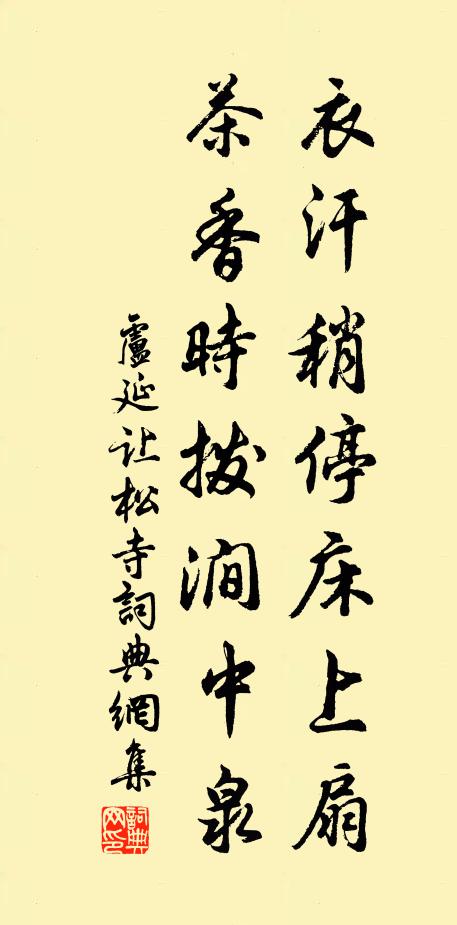 衣汗稍停床上扇
茶香時拨澗中泉
盧延让松寺詞典網集
詞典網印